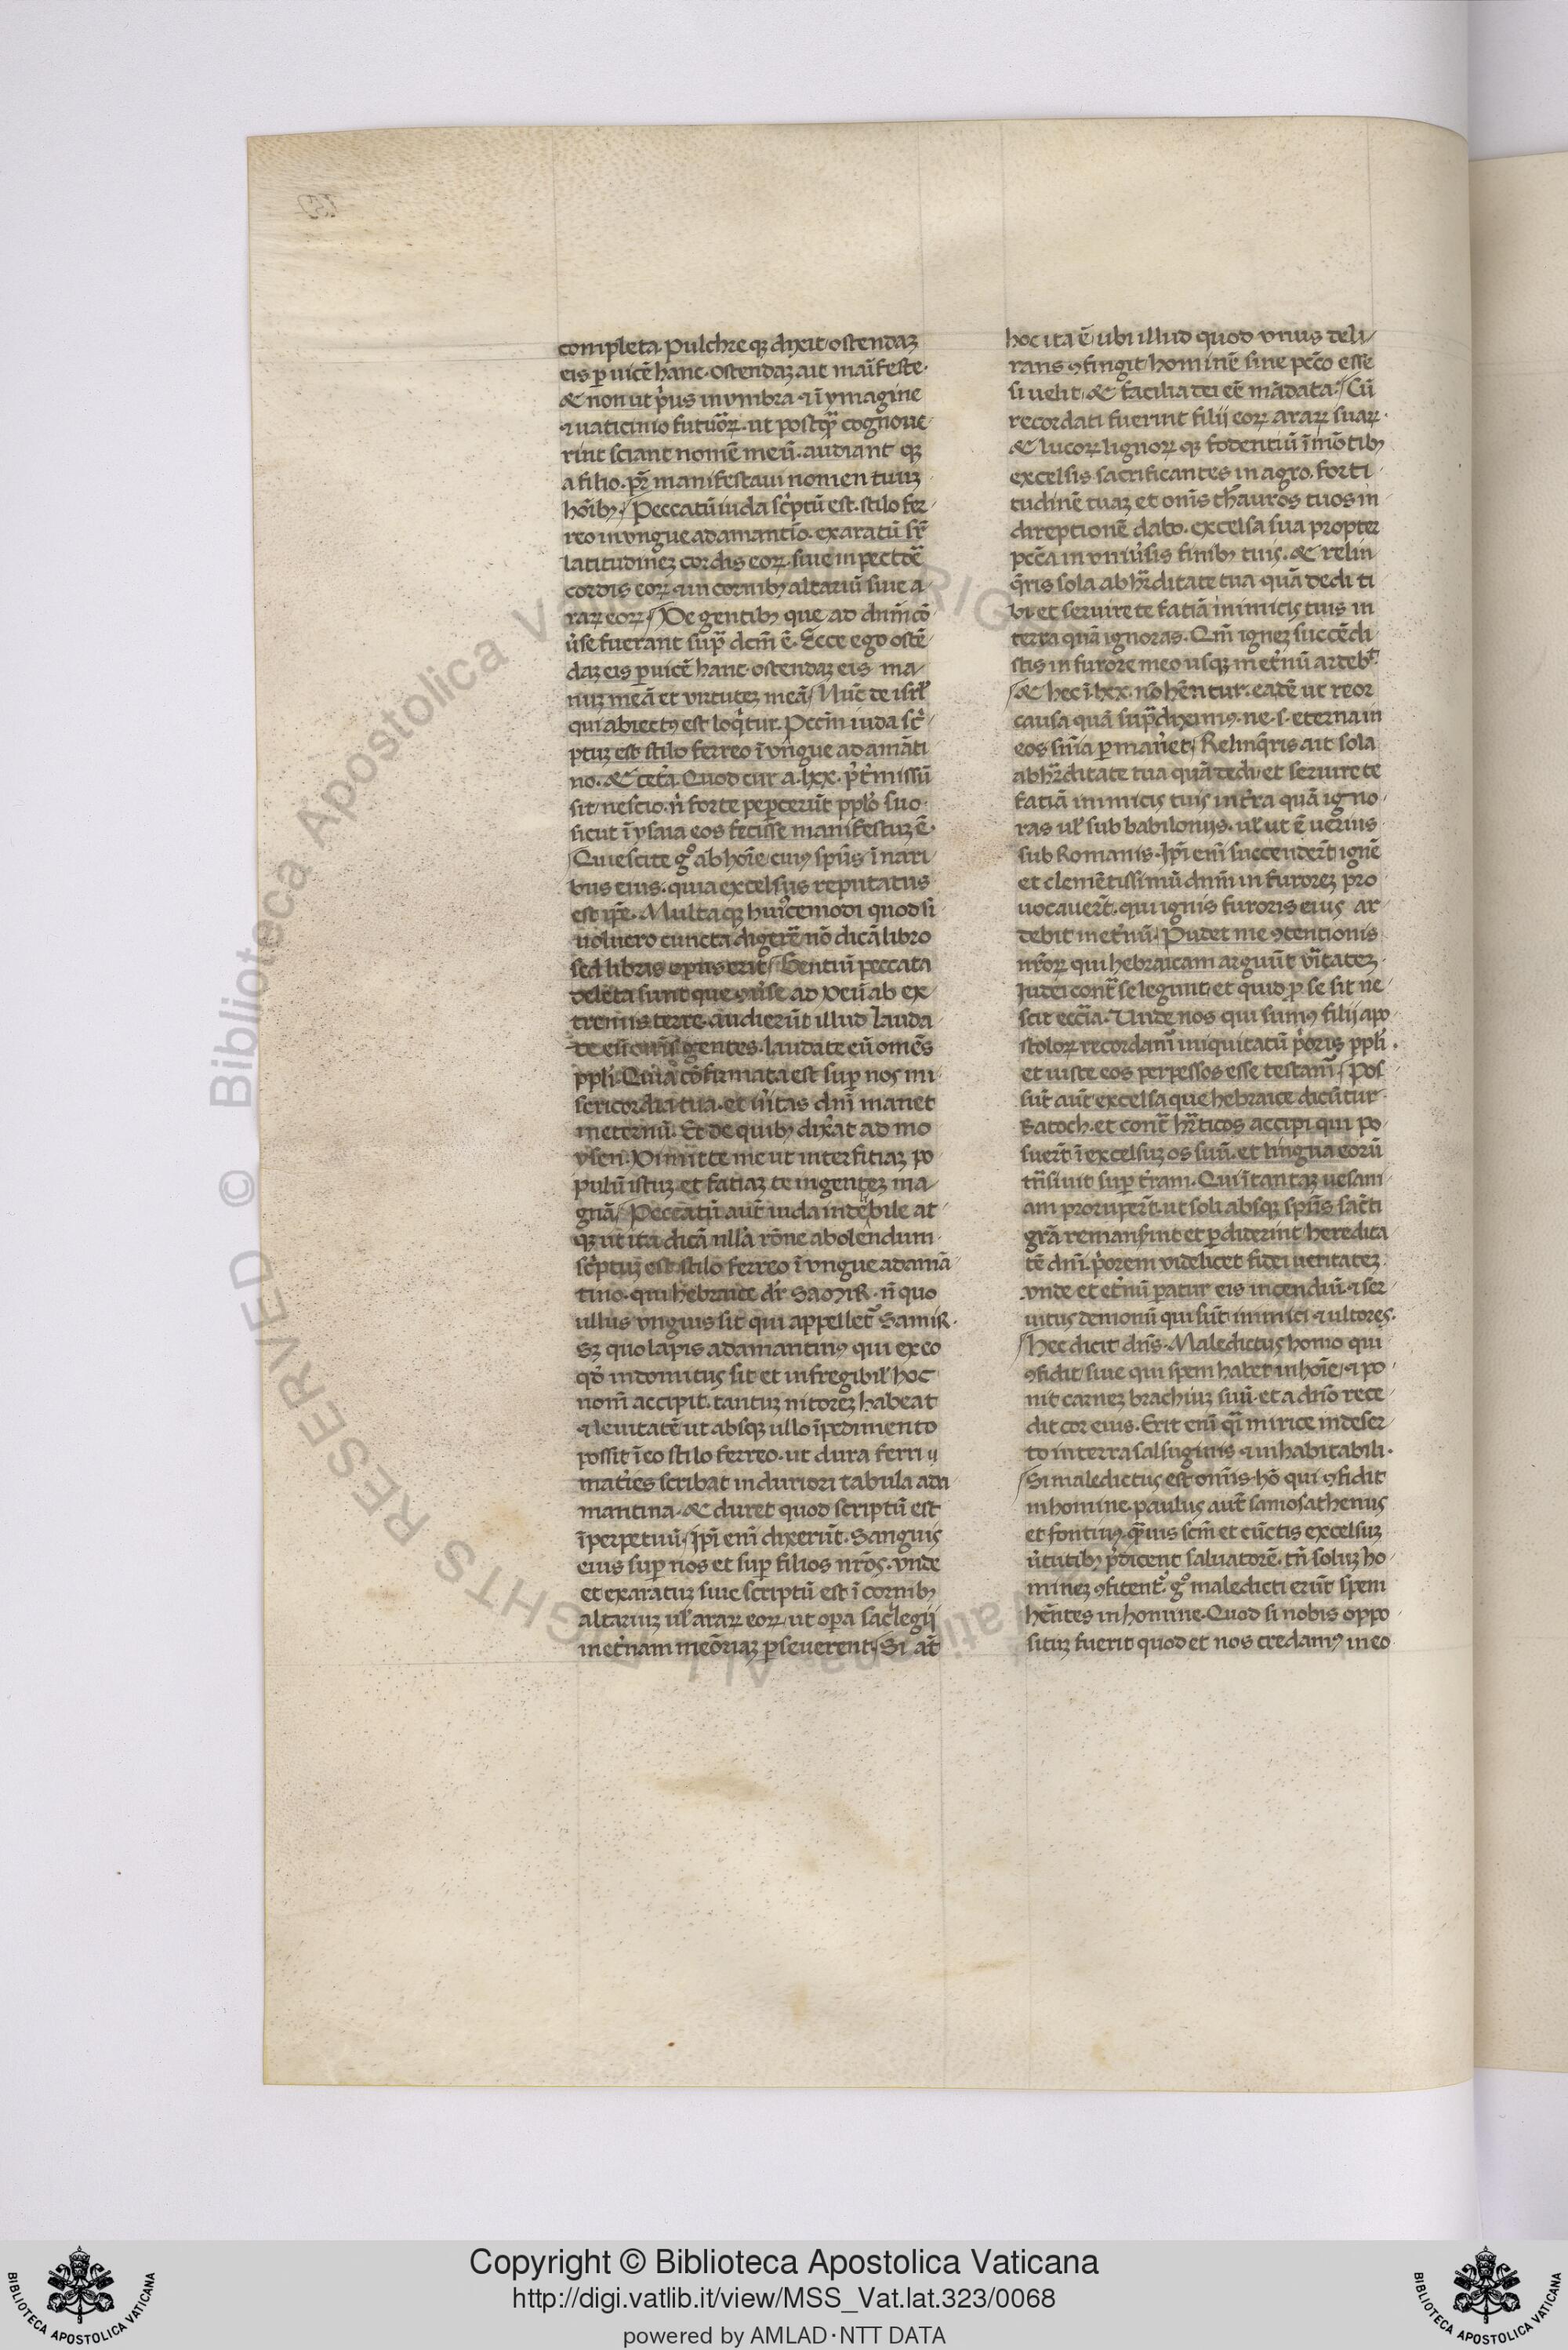 completa. Pulchre qꝫ dixit ostendaꝫ
eis ꝑ uicē hanc. ostendaꝫ ait maīfeste.
& non ut p̍us in vmbra ⁊ ī ymagine
⁊ uaticinio futuōꝝ. ut postq̄ cognoue
rint sciant nomē meū. audiant qꝫ
a filio. pr̄ manifestaui nomen tuuꝫ
hōībꝫ. Peccatū iuda sc̍ptū est. stilo fer
reo in vngue adamantīo. exaratū sr̄
latitudineꝫ cordis eoꝝ. siue in pectōe
cordis eoꝝ. ⁊ in cornibꝫ altariū siue a
raꝝ eoꝝ. De gentibꝫ que ad dnm̄ cō
u̍se fuerant sup̄ dcm̄ ē. Ecce ego ostē
daꝫ eis ꝑ uicē hanc. ostendaꝫ eis ma
nuꝫ meā et virtuteꝫ meā. Nūc de isrl̄
qui abiectꝰ est loq̍tur. Pccm̄ iuda sc̍
ptuꝫ est stilo ferreo ī vngue adamāti
no. & cetˀa. Quod cur a .lxx. p̄tˀmissū
sit nescio. n̍ forte peꝑcerūt ppl̄o suo.
sicut ī ysaia eos fecisse manifestuꝫ ē.
Quiescite gͦ ab hoīe cuiꝰ spūs ī nari
bus eius. quia excelsus reputatus
est ip̄e. Multaqꝫ huiꝰcemodi quod si
uoluero cuncta digerē nō dicā libro
sed libris opus erit. Gentiū peccata
deleta sunt que ꝯu̍se ad deū ab ex
tremis terre. audierūt illud Lauda
te eū om̄s gentes. laudate eū omēs
ppl̄i. Quīa cōfirmata est suꝑ nos mi
sericordia tua. et u̍itas dn̄i manet
in eternū. Et de quibꝫ dixˀat ad mo
ysen. Dimitte me ut interfitiaꝫ po
pulū istuꝫ. et fatiaꝫ te in genteꝫ ma
gnā. Peccatū aut̄ iuda indēbile at
qꝫ ut ita dicā nll̄a rōne abolendum.
sc̍ptuꝫ est stilo ferreo ī vngue adamā
tino. qui hebraice dr̄ SAMIR. n̄ quo
ullus vnguis sit qui appellet̄ Samir.
Sꝫ quo lapis adamantinꝰ qui ex eo
qd̄ indomitus sit et infregibil̄ hoc
nom̄ accipit. tantuꝫ nitoreꝫ habeat
⁊ leuitatē ut absqꝫ ullo īpedimento
possit ī eo stilo ferreo. ut dura ferri
matˀies scribat in duriori tabula ada
mantina. & duret quod scriptū est
īperpetuū. ip̄i enī dixerūt. Sanguis
eius suꝑ nos et suꝑ filios nrōs. vnde
et exaratuꝫ siue scriptū est ī cornibꝫ
altariuꝫ ul̄ araꝝ eoꝝ. ut oꝑa sac̍legij
in etˀnam meōriaꝫ ꝑseuerent. Si at̄
hoc ita ē. ubi illud quod vnius deli
rans ꝯfingit hominē sine pec̄o esse
si uelit. & facilia dei eē mādata. Cū
recordati fuerint filij eoꝝ araꝝ suaꝝ.
& lucoꝝ lignoꝝ qꝫ fodentiū ī mōtibꝫ
excelsis sacrificantes in agro. forti
tudinē tuaꝫ et onīs thāuros tuos in
direptionē dabo. excelsa sua propter
pccā in vniūsis finibꝫ tuis. & relin
q̄ris sola ab hr̄ditate tua quā dedi ti
bi. et seruire te fatiā inimicis tuis in
terra quā ignoras. Qm̄ igneꝫ succēdi
stis in furore meo usqꝫ in etˀnū ardebͭ.
& hec ī .lxx. nō hēntur. eadē ut reor
causa quā supͣdiximꝰ. ne .s. eterna in
eos sn̄ia ꝑmanˀet. Relinq̄ris ait sola
ab hr̄ditate tua quā dedi. et seruire te
fatiā inimicis tuis in tˀra quā igno
ras ul̄ sub babilonijs. ul̄ ut ē uerius
sub Romanis. Ip̄i enī succendert̄ ignē
et clemētissimū dnm̄ in furoreꝫ pro
uocauert̄. qui ignis furoris eius ar
debit in etˀnū. Pudet me ꝯtentionis
nr̄oꝝ qui hebraicam arguūt v̄itateꝫ
Iudei contͣ se legunt. et quid ꝓ se sit ne
scit ecc̄ia. Unde nos qui sumꝰ filij apo
stoloꝝ recordam̄ iniquitatū p̍oris ppl̄i.
et iuste eos perpessos esse testam̄. Pos
sūt aut̄ excelsa que hebraice dicūtur
Batoch. et contͣ hr̄ticos accipi qui po
suert̄ ī excelsuꝫ os suū. et lingua eorū
tn̄siuit suꝑ tˀram. Qui ī tantaꝫ uesani
am proruꝑert̄. ut soli absqꝫ spūs sāc̄ti
grā remanserint et ꝑdiderint heredita
tē dn̄i. p̍orem videlicet fidei ueritateꝫ
vnde et etˀnū paratur eis incendiū. ⁊ ser
uitus demonū qui sūt inimici ⁊ ultores.
Hec dicit dn̄s. Maledictus homo qui
ꝯfidit. siue qui spem habet in hoīe. ⁊ po
nit carneꝫ brachiuꝫ suū. et a dnō rece
dit cor eius. Erit enī qͣi mirice in deser
to in terra salsuginis ⁊ inhabitabili.
Si maledictus est onīs hō qui ꝯfidit
in homine. paulus aut̄ samosathenus
et fontinꝰ. qͣuis scm̄ et cūctis excelsuꝫ
u̍tutibꝫ p̄dicent saluatorē. tn̄ soluꝫ ho
mineꝫ ꝯfitent̄. gͦ maledicti erūt spem
hēntes in homine. Quod si nobis oppo
situꝫ fuerit quod et nos credamꝰ in eo
Copyright © Biblioteca Apostolica Vaticana
http://digi.vatlib.it/view/MSS_Vat.lat.323/0068
powered by AMLAD·NTT DATA